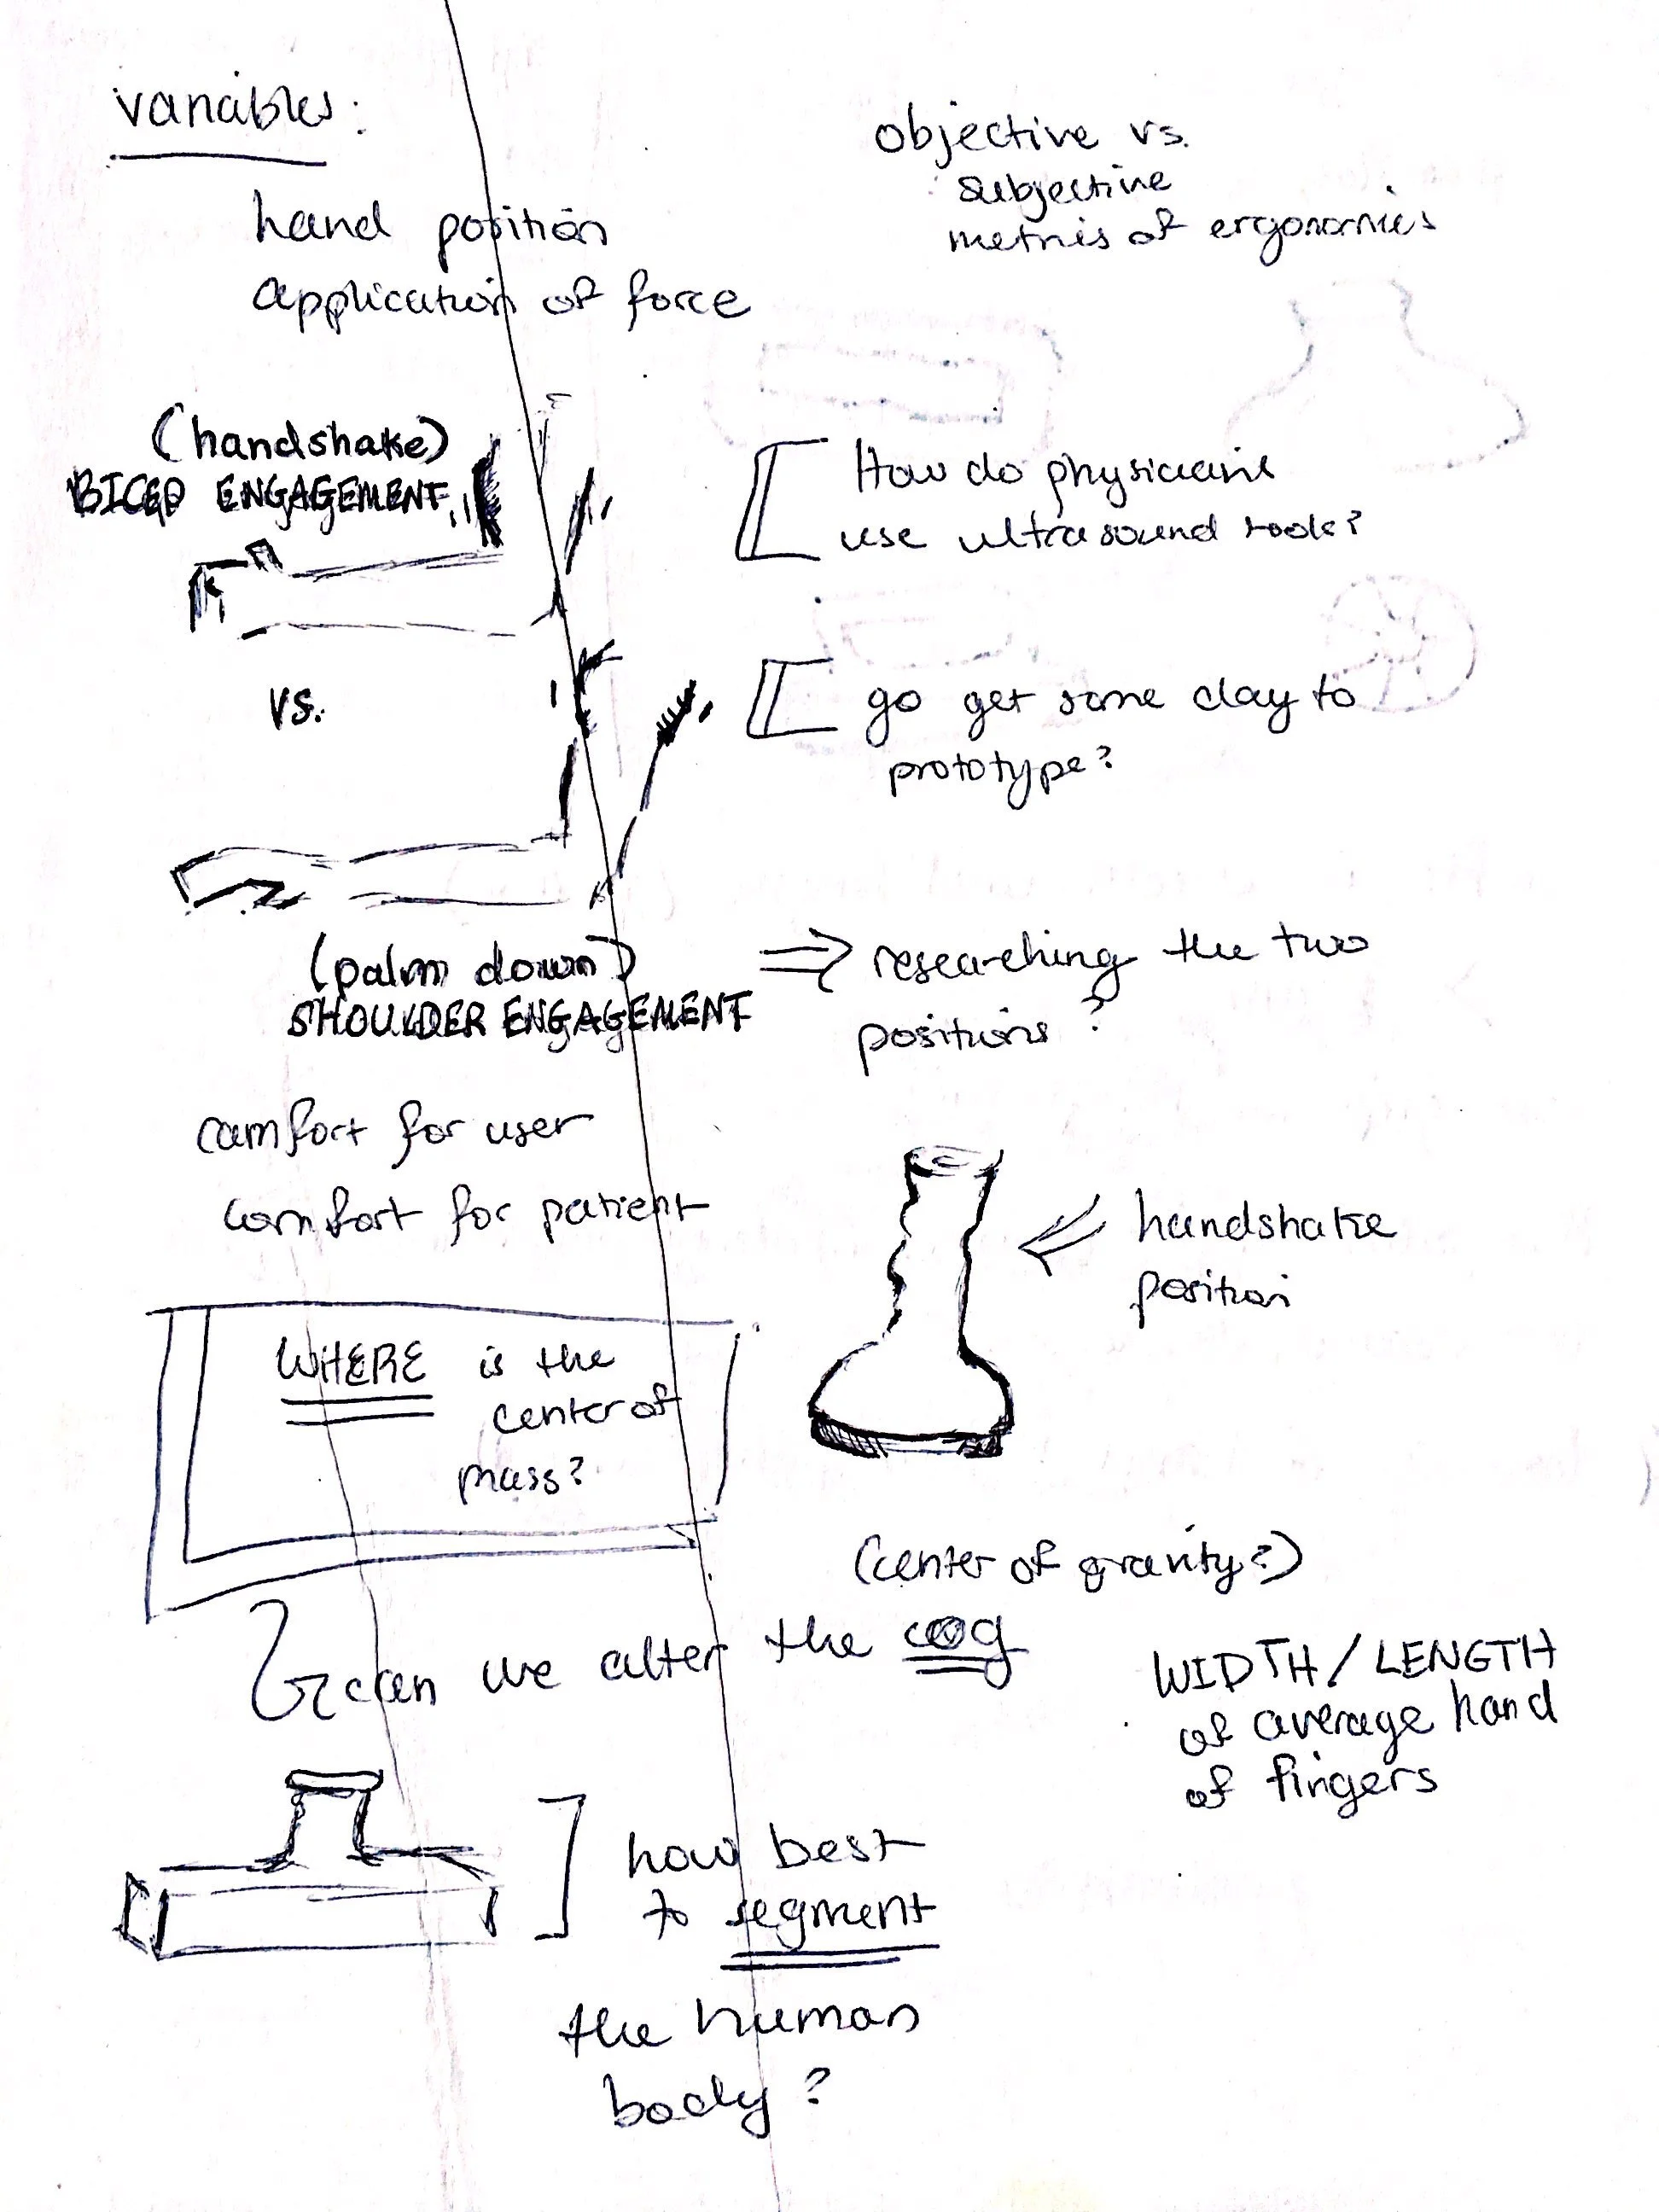 variables:
hand position
application of force
objective vs.
subjective
metrics of ergonomics
(handshake)
BICEP ENGAGEMENT
vs.
(palm down)
SHOULDER ENGAGEMENT
How do physicians
use ultrasound tools?
go get some clay to
prototype?
⇒ researching the two
positions?
comfort for user
comfort for patient
handshake
position
WHERE is the
center of
mass?
(center of gravity?)
can we alter the cog
WIDTH/LENGTH
of average hand
of fingers
how best
to segment
the human
body?